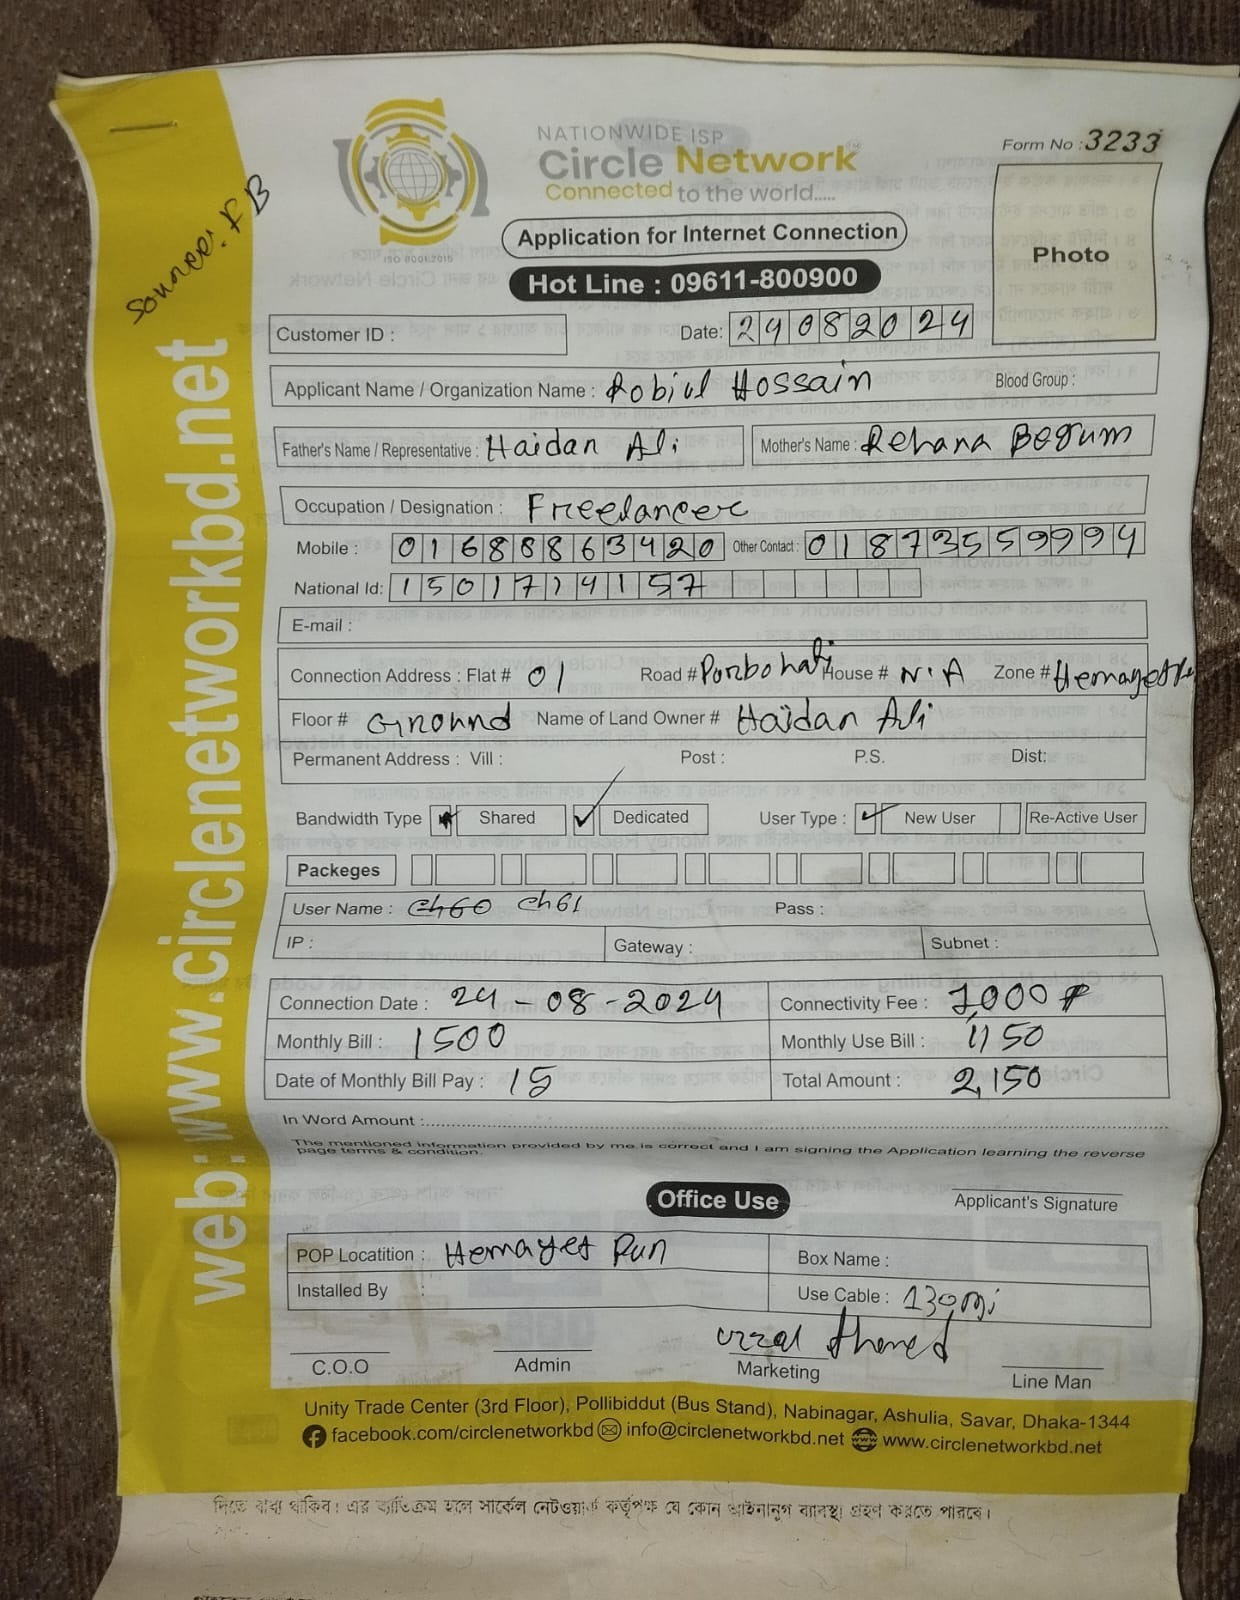 NATIONWIDE ISP
Circle Network
Connected to the world.....
ISO 9001:2015
Form No : 3233
Photo
Source: FB
Application for Internet Connection
Hot Line : 09611-800900
web: www.circlenetworkbd.net
Customer ID : Date: 24082024
Applicant Name / Organization Name : Robiul Hossain Blood Group :
Father's Name / Representative : Haidan Ali Mother's Name : Rehana Begum
Occupation / Designation : Freelancer
Mobile : 01688863420 Other Contact : 01873559994
National Id: 1501714157
E-mail :
Connection Address : Flat # 01 Road # Purbohati House # N.A Zone #
Floor # Ground Name of Land Owner # Haidan Ali
Permanent Address : Vill : Post : P.S. Dist:
Bandwidth Type Shared Dedicated User Type : New User Re-Active User
Packeges
User Name : ch60 ch61 Pass :
IP : Gateway : Subnet :
Connection Date : 24-08-2024 Connectivity Fee : 1,000
Monthly Bill : 1500 Monthly Use Bill : 1150
Date of Monthly Bill Pay : 15 Total Amount : 2,150
In Word Amount :
The mentioned information provided by me is correct and I am signing the Application learning the reverse
page terms & condition.
Office Use
Applicant's Signature
POP Locatition : Hemayet Pur Box Name :
Installed By : Use Cable : 130 mi
Uzzal Ahmed
C.O.O Admin Marketing Line Man
Unity Trade Center (3rd Floor), Pollibiddut (Bus Stand), Nabinagar, Ashulia, Savar, Dhaka-1344
facebook.com/circlenetworkbd info@circlenetworkbd.net www.circlenetworkbd.net
দিতে বাধ্য থাকিব। এর ব্যতিক্রম হলে সার্কেল নেটওয়ার্ক কর্তৃপক্ষ যে কোন আইনানুগ ব্যবস্থা গ্রহণ করতে পারবে।